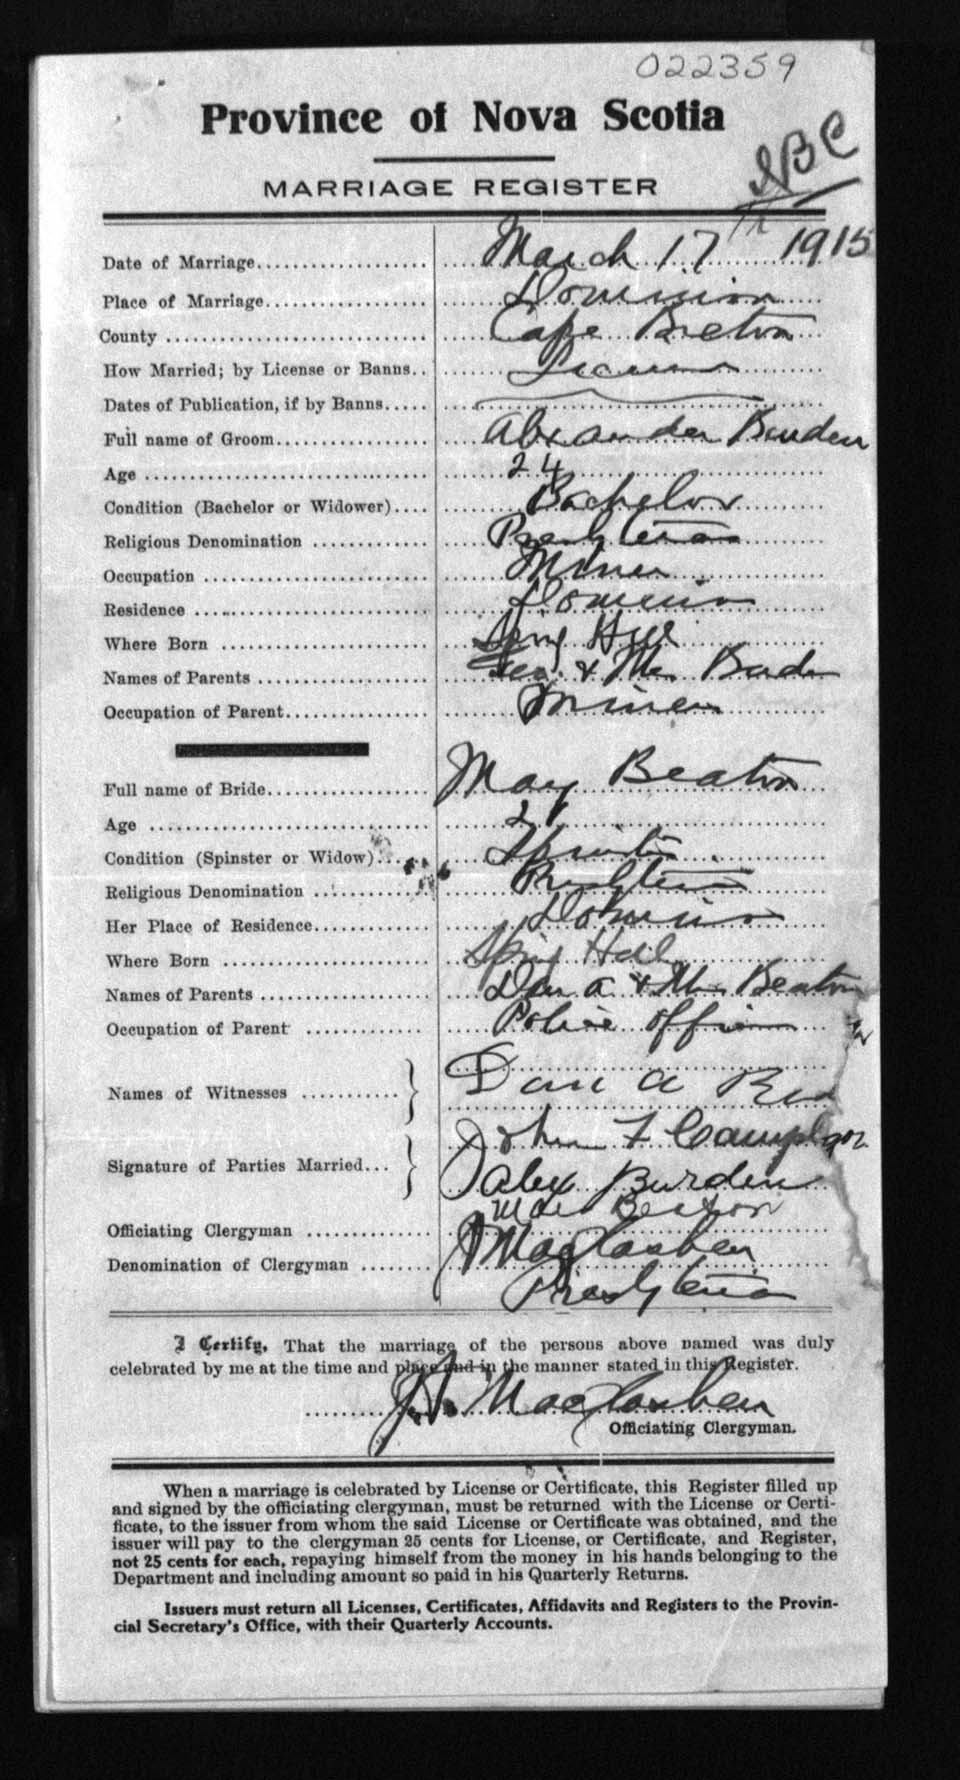 022359
Province of Nova Scotia
MARRIAGE REGISTER
Date of Marriage March 17 1915
Place of Marriage Dominion
County Cape Breton
How Married; by License or Banns License
Dates of Publication, if by Banns
Full name of Groom Alexander Burden
Age 24
Condition (Bachelor or Widower) Bachelor
Religious Denomination Presbyterian
Occupation Miner
Residence Dominion
Where Born Spring Hill
Names of Parents Geo. & Mrs Burden
Occupation of Parent Miner
Full name of Bride May Beaton
Age 21
Condition (Spinster or Widow) Spinster
Religious Denomination Presbyterian
Her Place of Residence Dominion
Where Born Spring Hill
Names of Parents Dan A & Mrs Beaton
Occupation of Parent Police officer
Names of Witnesses Dan A
John F
Signature of Parties Married Alex Burden
Mae Beaton
Officiating Clergyman
Denomination of Clergyman Presbyterian
I Certify, That the marriage of the persons above named was duly
celebrated by me at the time and place and in the manner stated in this Register.
Officiating Clergyman.
When a marriage is celebrated by License or Certificate, this Register filled up
and signed by the officiating clergyman, must be returned with the License or Certi-
ficate, to the issuer from whom the said License or Certificate was obtained, and the
issuer will pay to the clergyman 25 cents for License, or Certificate, and Register,
not 25 cents for each, repaying himself from the money in his hands belonging to the
Department and including amount so paid in his Quarterly Returns.
Issuers must return all Licenses, Certificates, Affidavits and Registers to the Provin-
cial Secretary's Office, with their Quarterly Accounts.